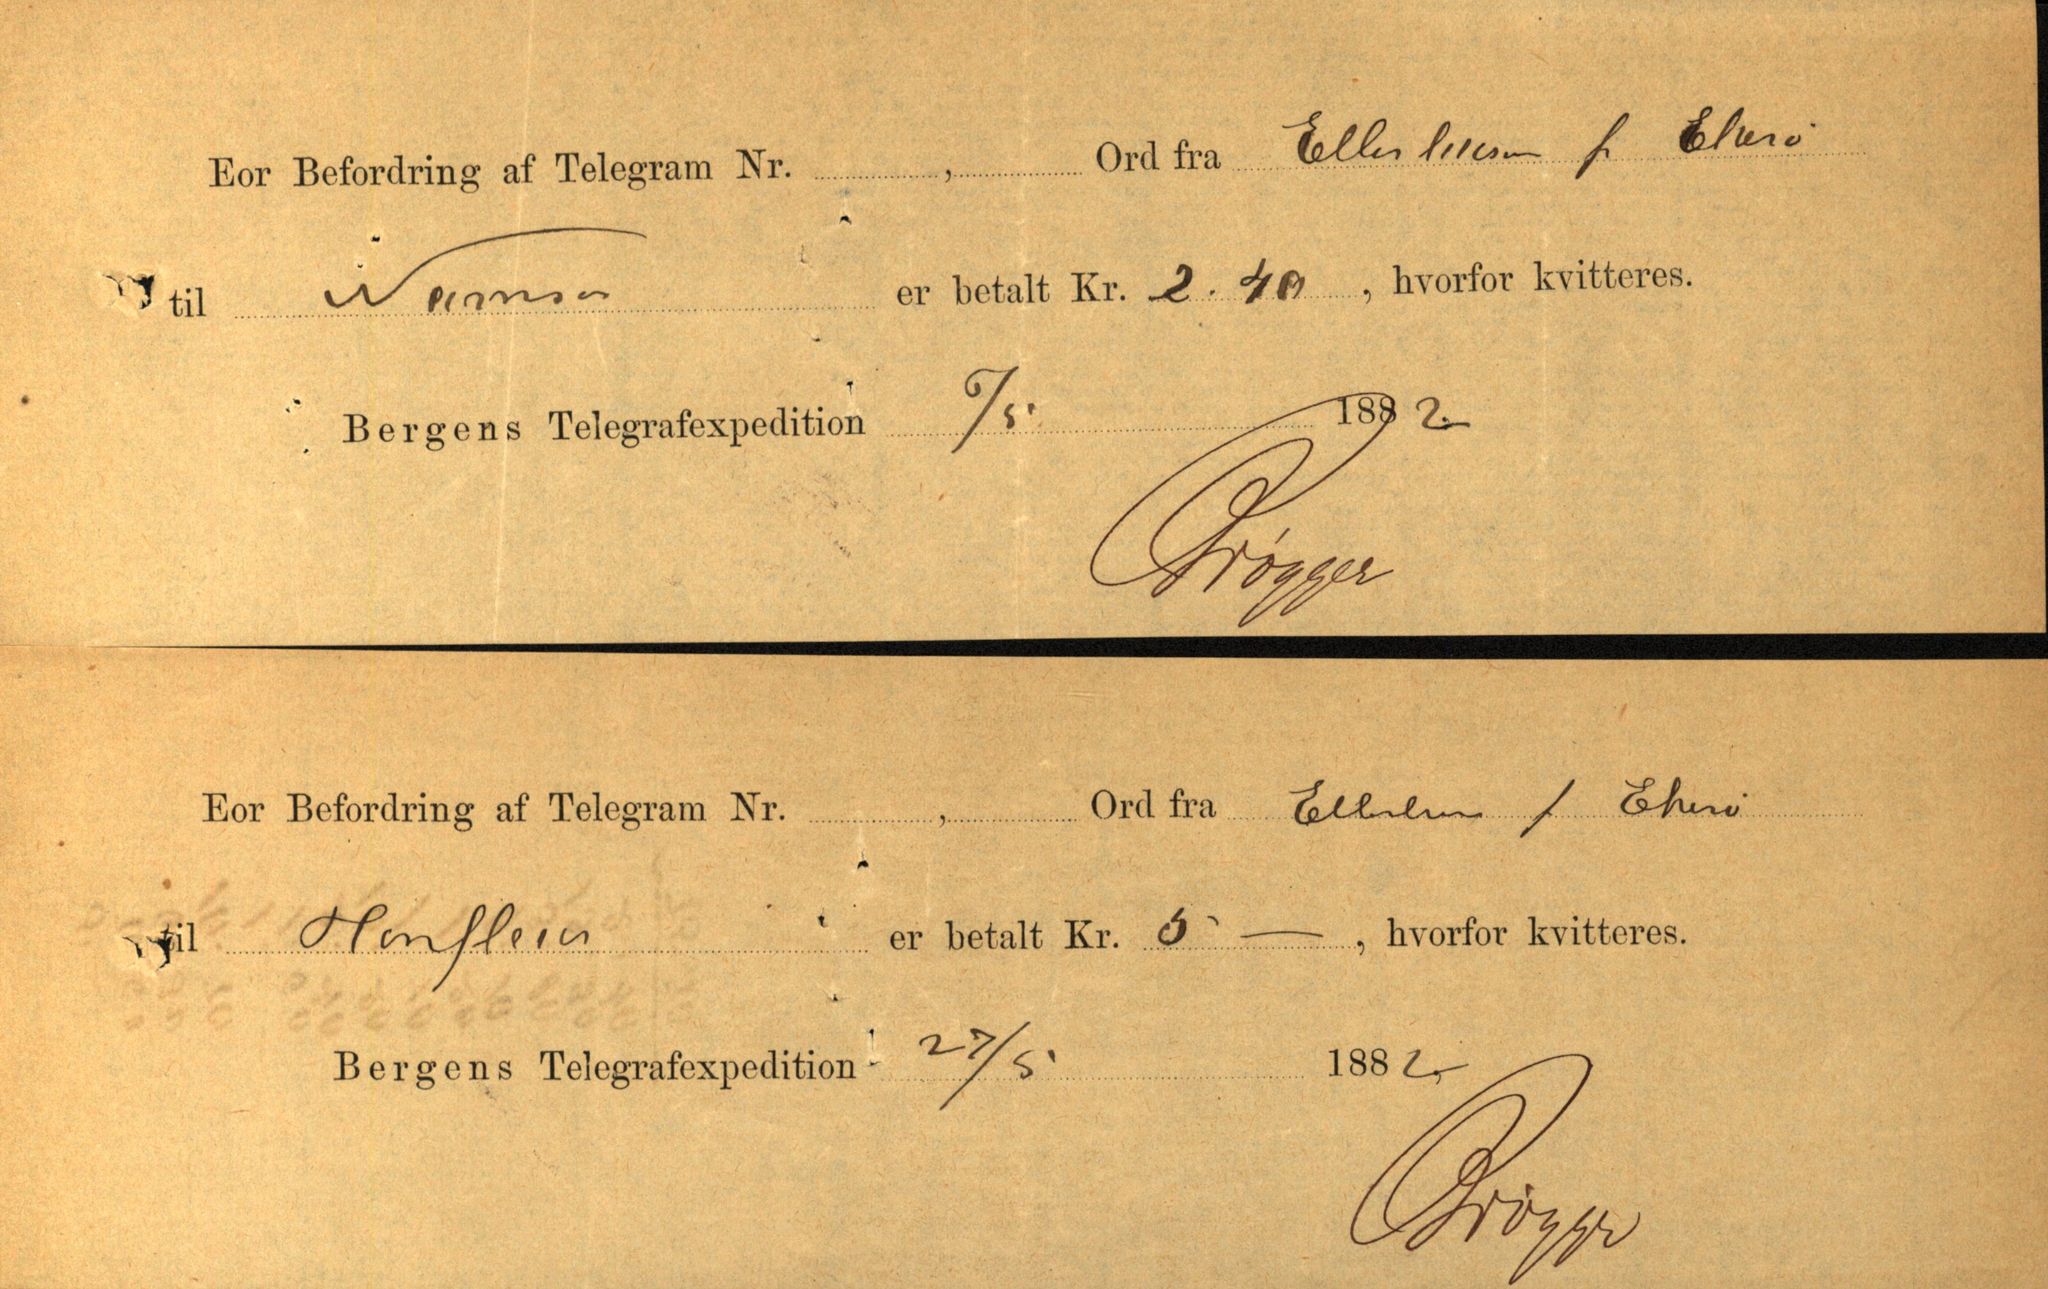 Eor Befordring af Telegram Nr. , Ord fra Ellerhusen f Ekerö
til Namsos er betalt Kr. 2.40, hvorfor kvitteres.
Bergens Telegrafexpedition 6/5 1882
Brøgger
Eor Befordring af Telegram Nr. , Ord fra Ellerhusen f Ekerö
til Honfleur er betalt Kr. 5 —, hvorfor kvitteres.
Bergens Telegrafexpedition 27/5 1882
Brøgger